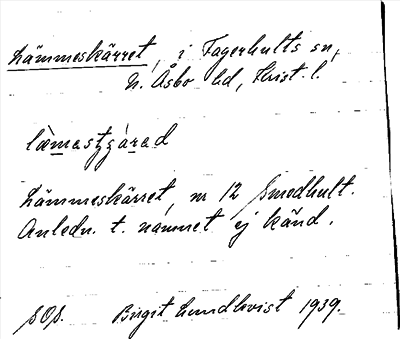 Lämmeskärret, i Fagerhults sn,
N. Åsbo hd, Krist. l.
Lämmeskärret, nr 12 Smedhult.
Anledn. t. namnet ej känd.
SOS. Birgit Lundkvist 1939.